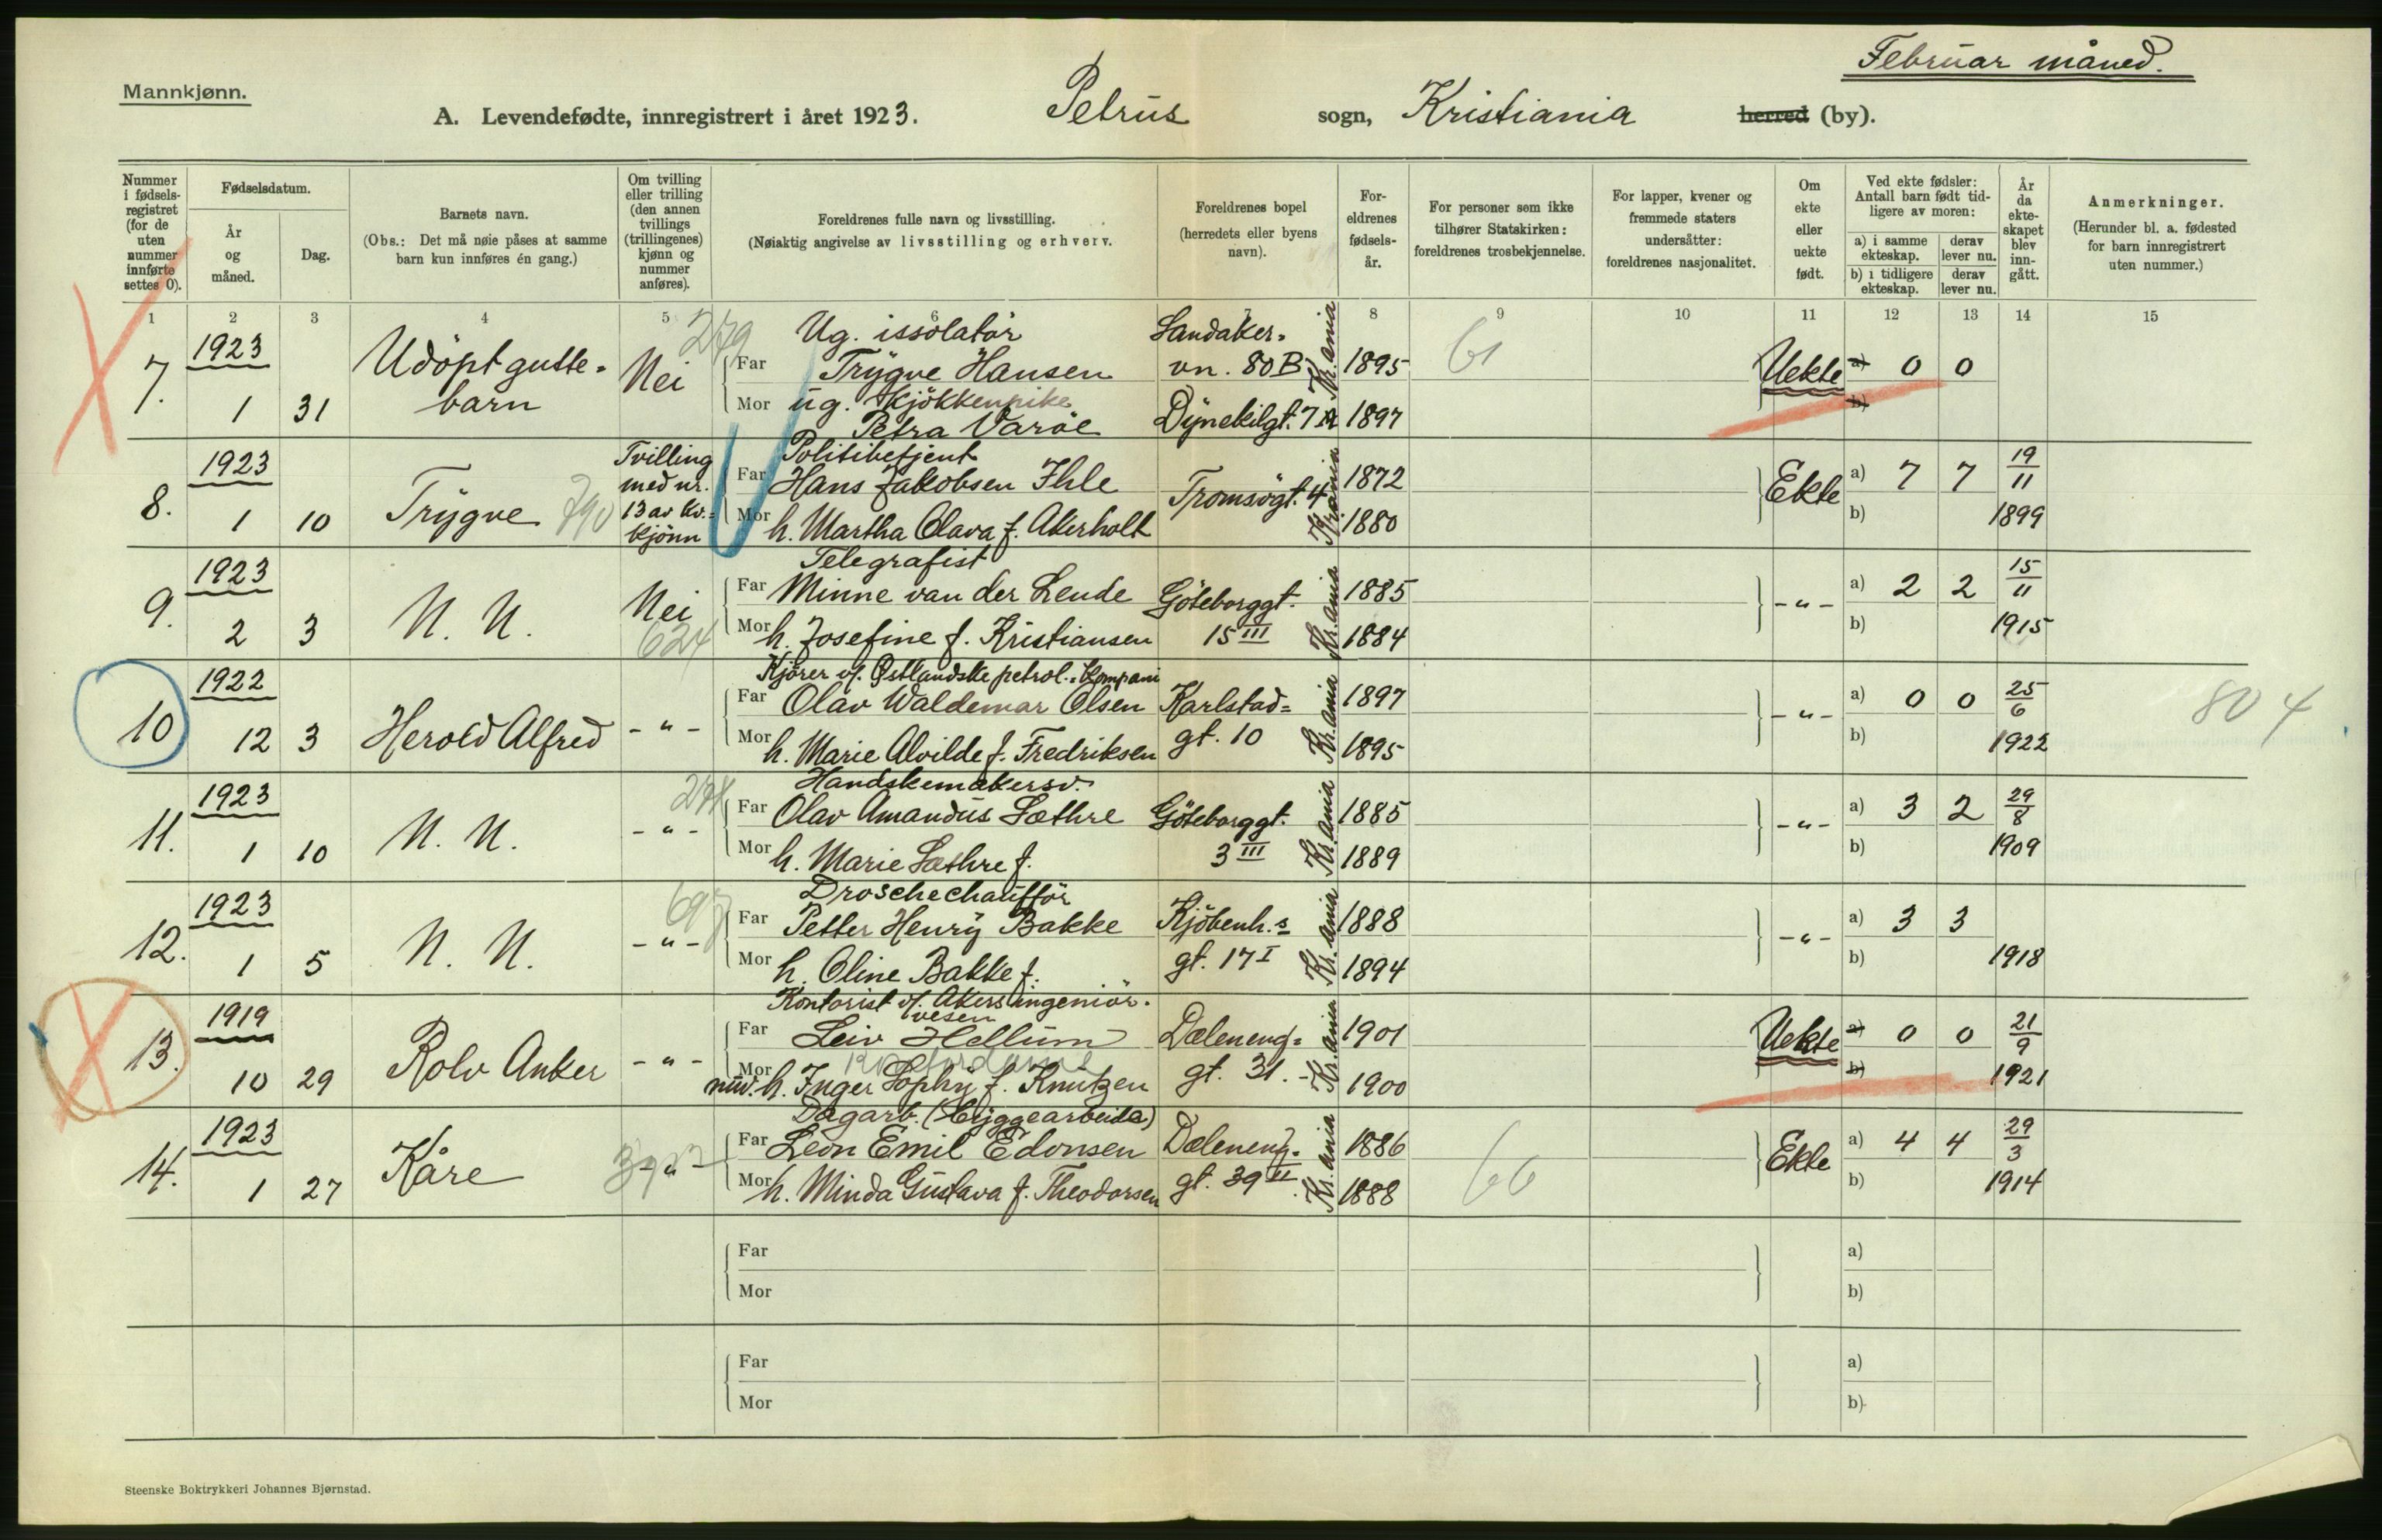 Februar måned.
Mannkjønn.
A. Levendefødte, innregistrert i året 1923. Petrus sogn, Kristiania herred (by).
Nummer i fødsels-registret (for de uten nummer innførte settes 0).
Fødselsdatum.
År og måned.
Dag.
Barnets navn.
(Obs.: Det må nøie påses at samme barn kun innføres én gang.)
Om tvilling eller trilling (den annen tvillings (trillingenes) kjønn og nummer anføres).
Foreldrenes fulle navn og livsstilling.
(Nøiaktig angivelse av livsstilling og erhverv.
Foreldrenes bopel (herredets eller byens navn).
For-eldrenes fødsels-år.
For personer som ikke tilhører Statskirken: foreldrenes trosbekjennelse.
For lapper, kvener og fremmede staters undersåtter: foreldrenes nasjonalitet.
Om ekte eller uekte født.
Ved ekte fødsler: Antall barn født tid-ligere av moren:
a) i samme ekteskap. derav lever nu.
b) i tidligere ekteskap. derav lever nu.
År da ekte-skapet blev inn-gått.
Anmerkninger.
(Herunder bl. a. fødested for barn innregistrert uten nummer.)
1 2 3 4 5 6 7 8 9 10 11 12 13 14 15
7. 1923 1 31 Udöpt gutte-barn Nei 279
Ug. issolatör
Far Trygve Hansen Sandaker-vn. 80 B Kr.ania 1895 61 Uekte a) 0 0
Mor ug. kjökkenpike
Petra Varöe Dynekilgt. 7 A 1897 b)
8. 1923 1 10 Trygve 790 Tvilling med nr. 13 av kv.-kjönn
Politibetjent
Far Hans Jakobsen Ihle Tromsögt. 4 Kr.ania 1872 Ekte a) 7 7 19/11
Mor h. Martha Olava f. Akerholt 1880 b) 1899
9. 1923 2 3 N. N. Nei 624
Telegrafist
Far Minne van der Lende Göteborggt. Kr.ania 1885 -"- a) 2 2 15/11
Mor h. Josefine f. Kristiansen 15 III 1884 b) 1915
10 1922 12 3 Herold Alfred -"-
Kjörer v/. Østlandske petrol.-kompani
Far Olav Waldemar Olsen Karlstad- Kr.ania 1897 -"- a) 0 0 25/6 804
Mor h. Marie Alvilde f. Fredriksen gt. 10 1895 b) 1922
11. 1923 1 10 N. N. -"-
Handskemakersv.
Far Olav Amandus Sæthre Göteborggt. Kr.ania 1885 -"- a) 3 2 29/8
Mor h. Marie Sæthre f. 3 III 1889 b) 1909
12. 1923 1 5 N. N. -"-
Droschechaufför
Far Petter Henry Bakke Kjöbenh.s- Kr.ania 1888 -"- a) 3 3
Mor h. Oline Bakke f. gt. 17 I 1894 b) 1918
13. 1919 10 29 Rolv Anker -"-
Kontorist v/. Akers ingeniör-vesen
Far Leiv Hellum Dæleneng- Kr.ania 1901 Uekte a) 0 0 21/9
Mor nuv. h. Inger Sophy f. Knutzen gt. 31. 1900 b) 1921
14. 1923 1 27 Kåre -"-
Dagarb. (byggearbeide)
Far Leon Emil Edonsen Dæleneng- Kr.ania 1886 66 Ekte a) 4 4 29/3
Mor h. Minda Gustava f. Theodorsen gt. 39 II 1888 b) 1914
Far a)
Mor b)
Far a)
Mor b)
Steenske Boktrykkeri Johannes Bjørnstad.